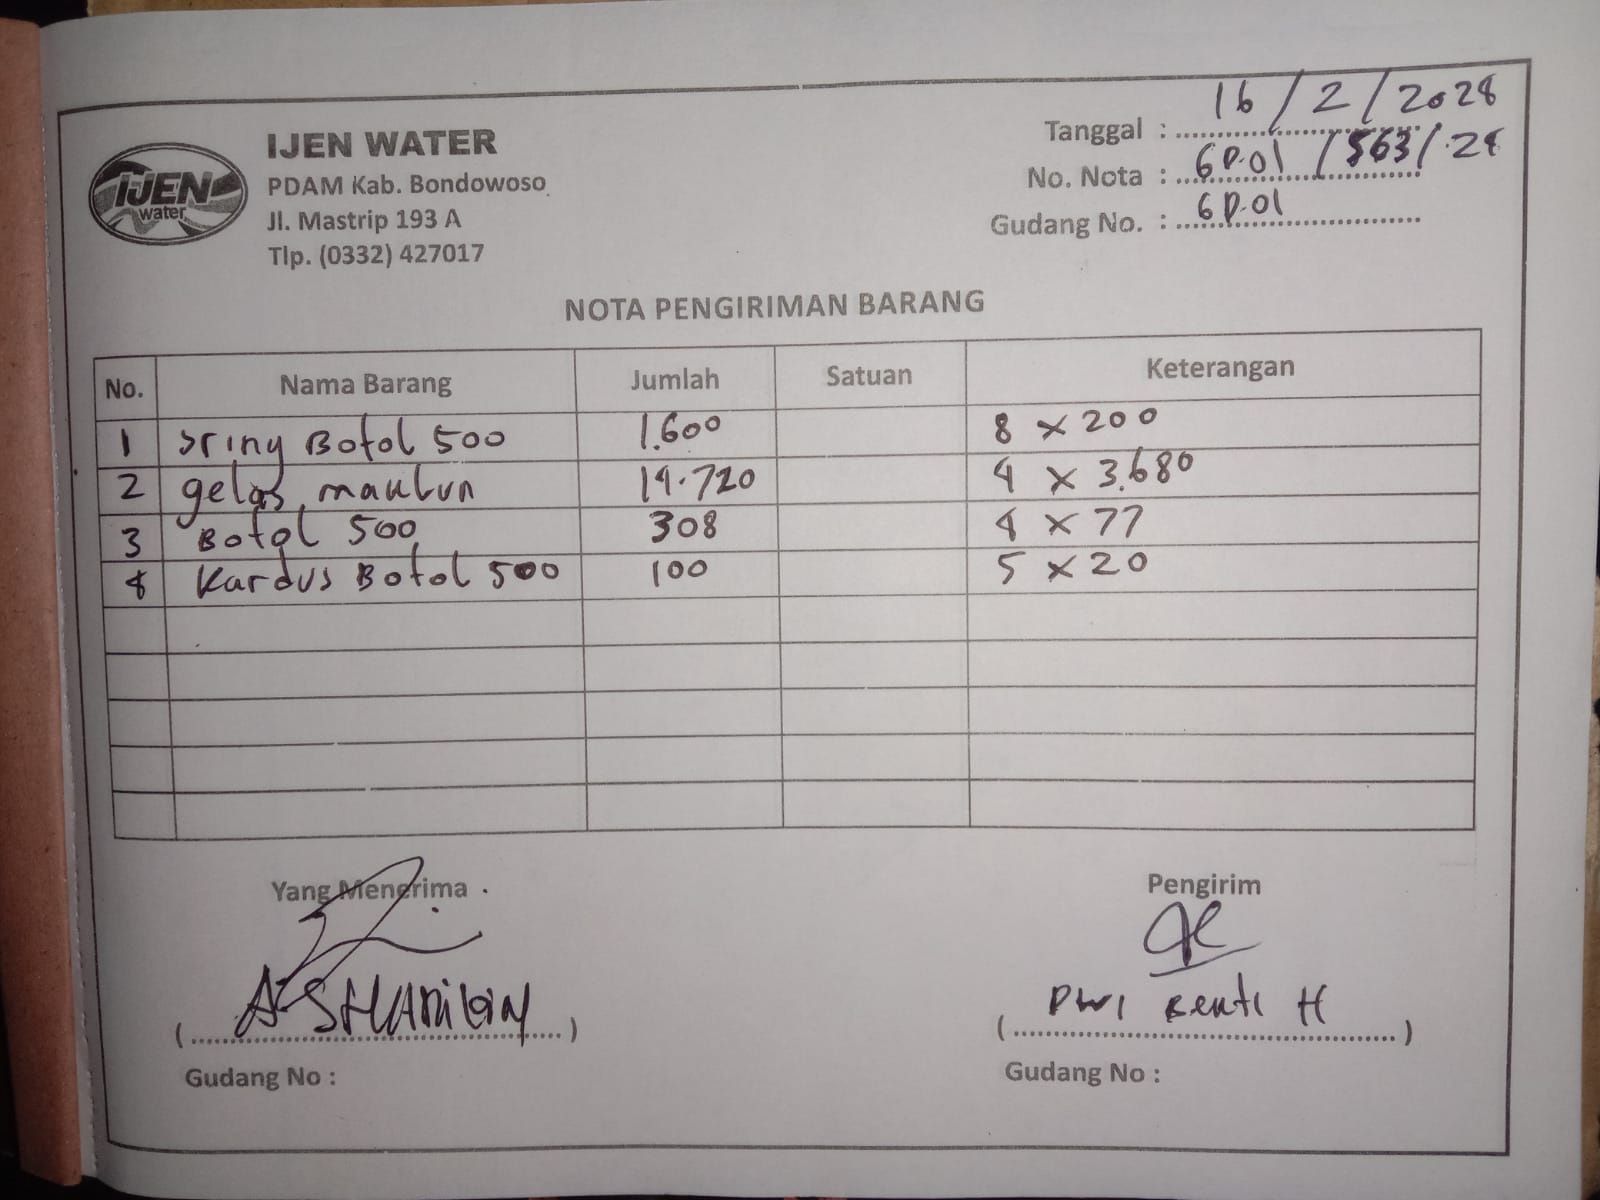 IJEN WATER
PDAM Kab. Bondowoso
Jl. Mastrip 193 A
Tlp. (0332) 427017
IJEN
water
Tanggal : 16/2/2024
No. Nota : GD.01 /563/.24
Gudang No. : GD.01
NOTA PENGIRIMAN BARANG
No. Nama Barang Jumlah Satuan Keterangan
1 Sring Botol 500 1.600 8 x 200
2 gelas maklun 14.720 4 x 3.680
3 Botol 500 308 4 x 77
4 Kardus Botol 500 100 5 x 20
Yang Menerima
Pengirim
DWI H
Gudang No :
Gudang No :